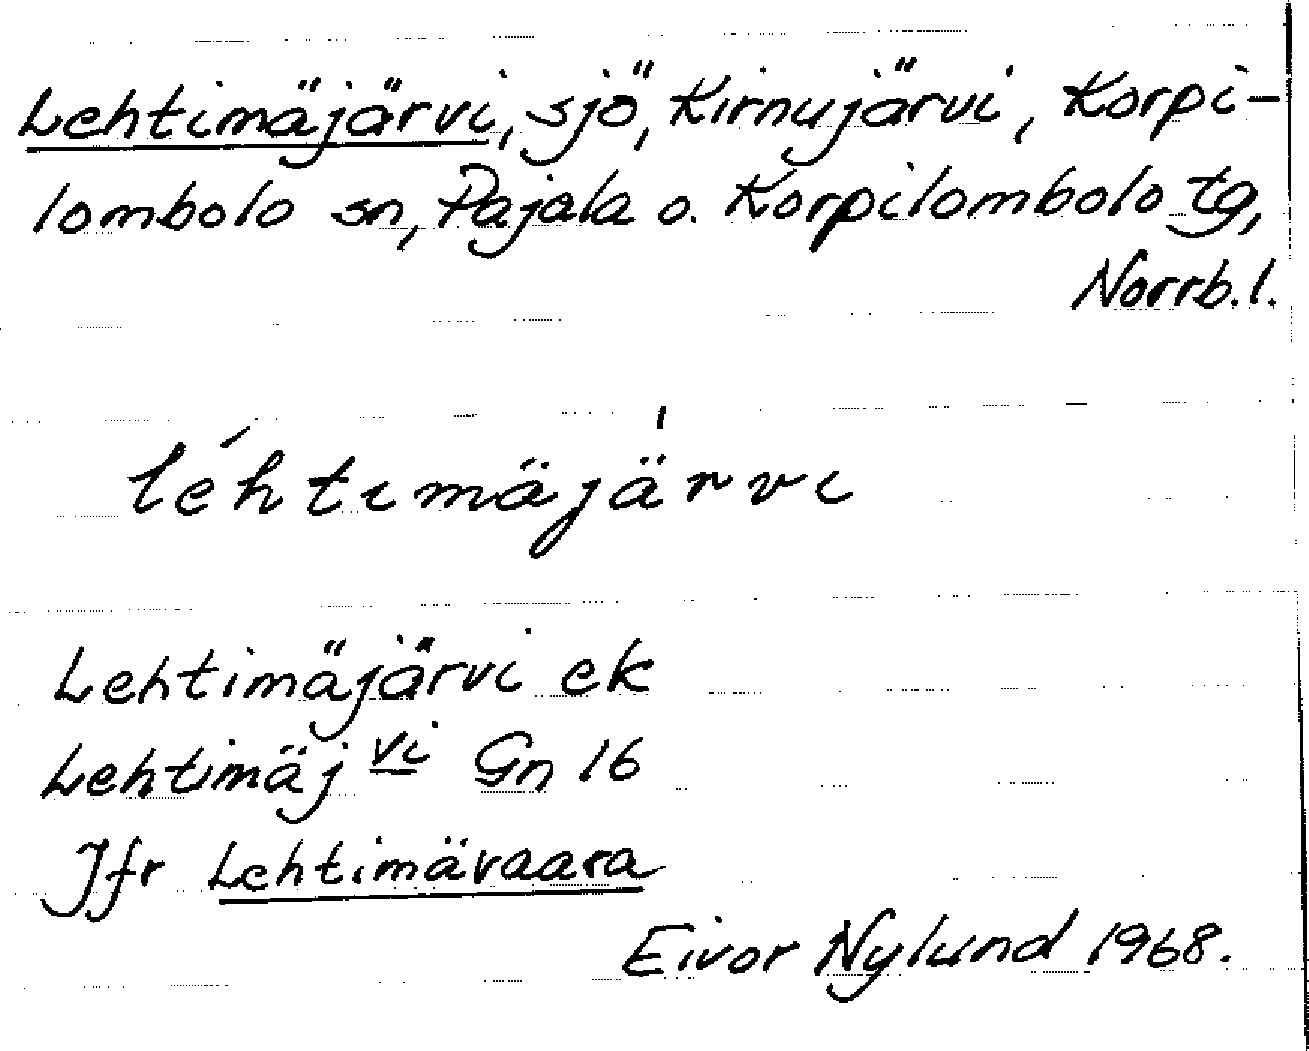 Lehtimäjärvi, sjö, Kirnujärvi, Korpi-
lombolo sn, Pajala o. Korpilombolo tg,
Norrb. l.
léhtımäjä'rvı
Lehtimäjärvi ek
Lehtimäj vi Gn 16
Jfr Lehtimävaara
Eivor Nylund 1968.